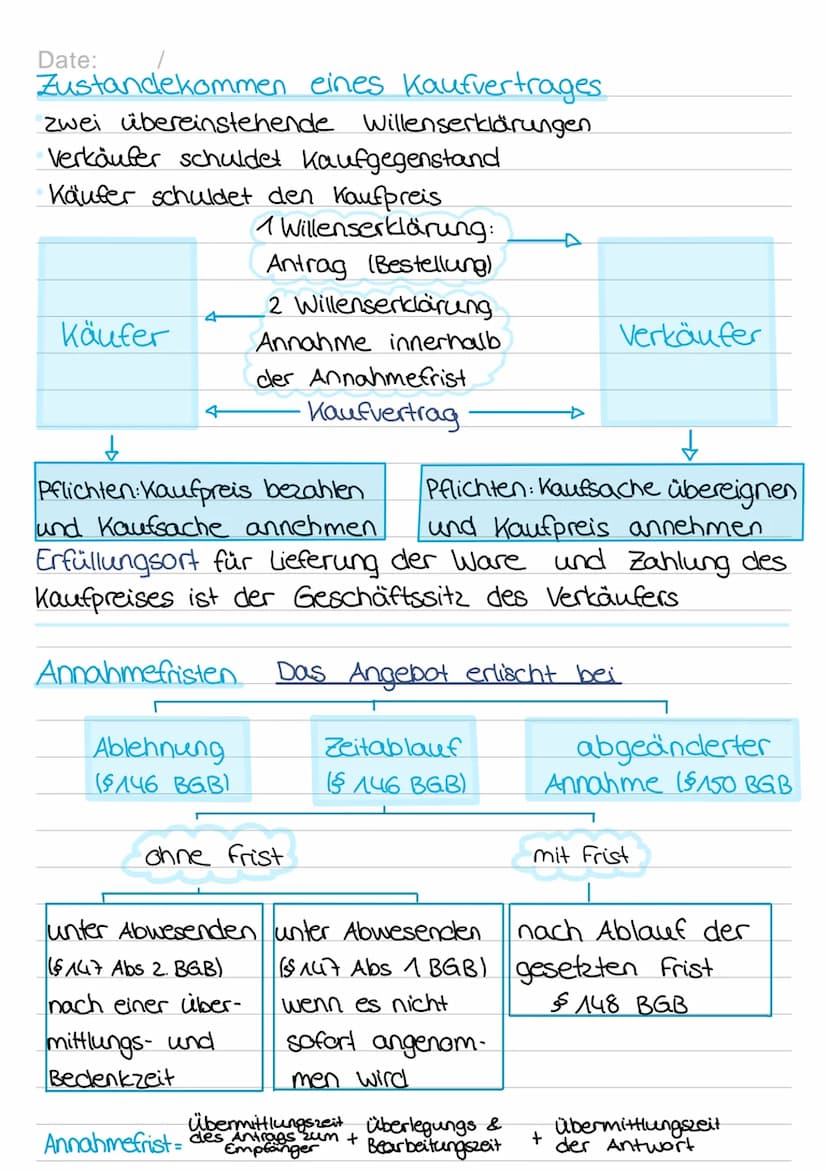 Date: /
Zustandekommen eines Kaufvertrages
zwei übereinstehende Willenserklärungen
Verkäufer schuldet Kaufgegenstand
Käufer schuldet den Kaufpreis
1 Willenserklärung:
Antrag (Bestellung)
2 Willenserklärung
Annahme innerhalb
der Annahmefrist
Käufer
Verkäufer
Kaufvertrag
Pflichten: Kaufpreis bezahlen
und Kaufsache annehmen
Pflichten: Kaufsache übereignen
und Kaufpreis annehmen
Erfüllungsort für Lieferung der Ware und Zahlung des
Kaufpreises ist der Geschäftssitz des Verkäufers
Annahmefristen Das Angebot erlischt bei
Ablehnung
(§146 BGB)
Zeitablauf
(§ 146 BGB)
abgeänderter
Annahme (§150 BGB
ohne Frist
mit Frist
unter Abwesenden
(§147 Abs 2. BGB)
nach einer über-
mittlungs- und
Bedenkzeit
unter Abwesenden
(§147 Abs 1 BGB)
wenn es nicht
sofort angenom-
men wird
nach Ablauf der
gesetzten Frist
§ 148 BGB
Annahmefrist = Übermittlungszeit
des Antrags zum
Empfänger
+ Überlegungs &
Bearbeitungszeit
+ Übermittlungszeit
der Antwort